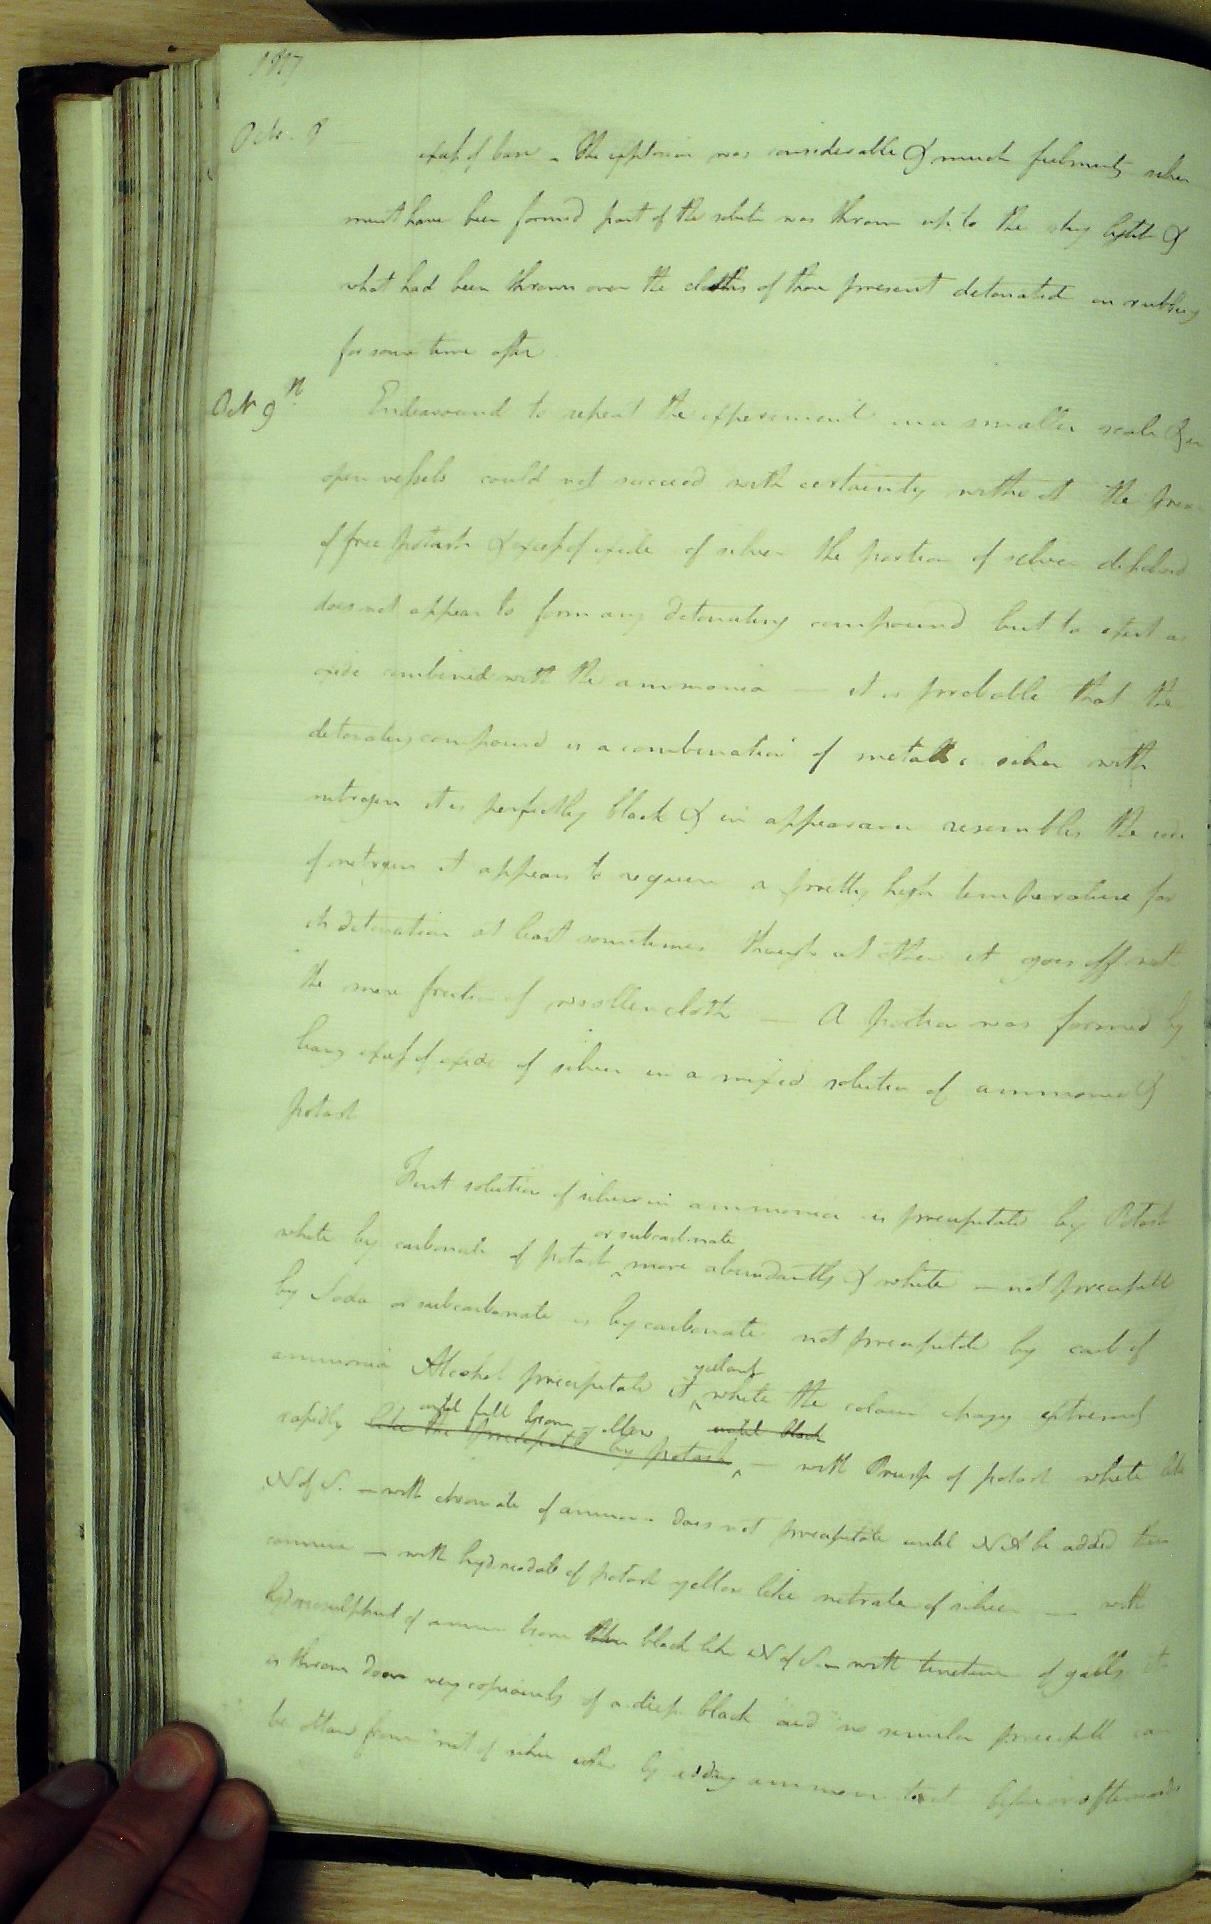 1817
Octr. 8
excess of base – The explosion was considerable & much fulminating silver
must have been formed part of the solution was thrown up to the sky light &
what had been thrown over the cloths of those present detonated on rubbing
for some time after
Octr 9th Endeavoured to repeat the experiment on a smaller scale & in
open vessels could not succeed with certainty without the
of free potash & excess of oxide of silver the portion of silver
does not appear to form any detonating compound but to exist as
oxide combined with the ammonia — it is probable that the
detonating compound is a combination of metallic silver with
nitrogen it is perfectly black & in appearance resembles the
of nitrogen it appears to require a pretty high temperature for
its detonation at least sometimes though at other it goes off with
the mere friction of woollen cloth — A portion was formed by
leaving excess of oxide of silver in a mixed solution of ammonia &
potash
solution of silver in ammonia is precipitated by Potash
or subcarbonate
white by carbonate of potash more abundantly & white — not precipitated
by Soda or subcarbonate is by carbonate not precipitated by carb of
ammonia Alcohol precipitate it yellowish white the colour changes extremely
until full brown yellow until black
rapidly like the precipitate by potash — with Prussi of potash white like
N of S. — with chromate of ammonia does not precipitate until NA be added then
— with hydriodate of potash yellow like nitrate of silver — with
hydrosulphuret of ammon brown then black like N of S — with tincture of galls it
is thrown down very copiously of a deep black and no similar precipitate can
be obtained from nit of silver either by adding ammonia to it before or afterwards